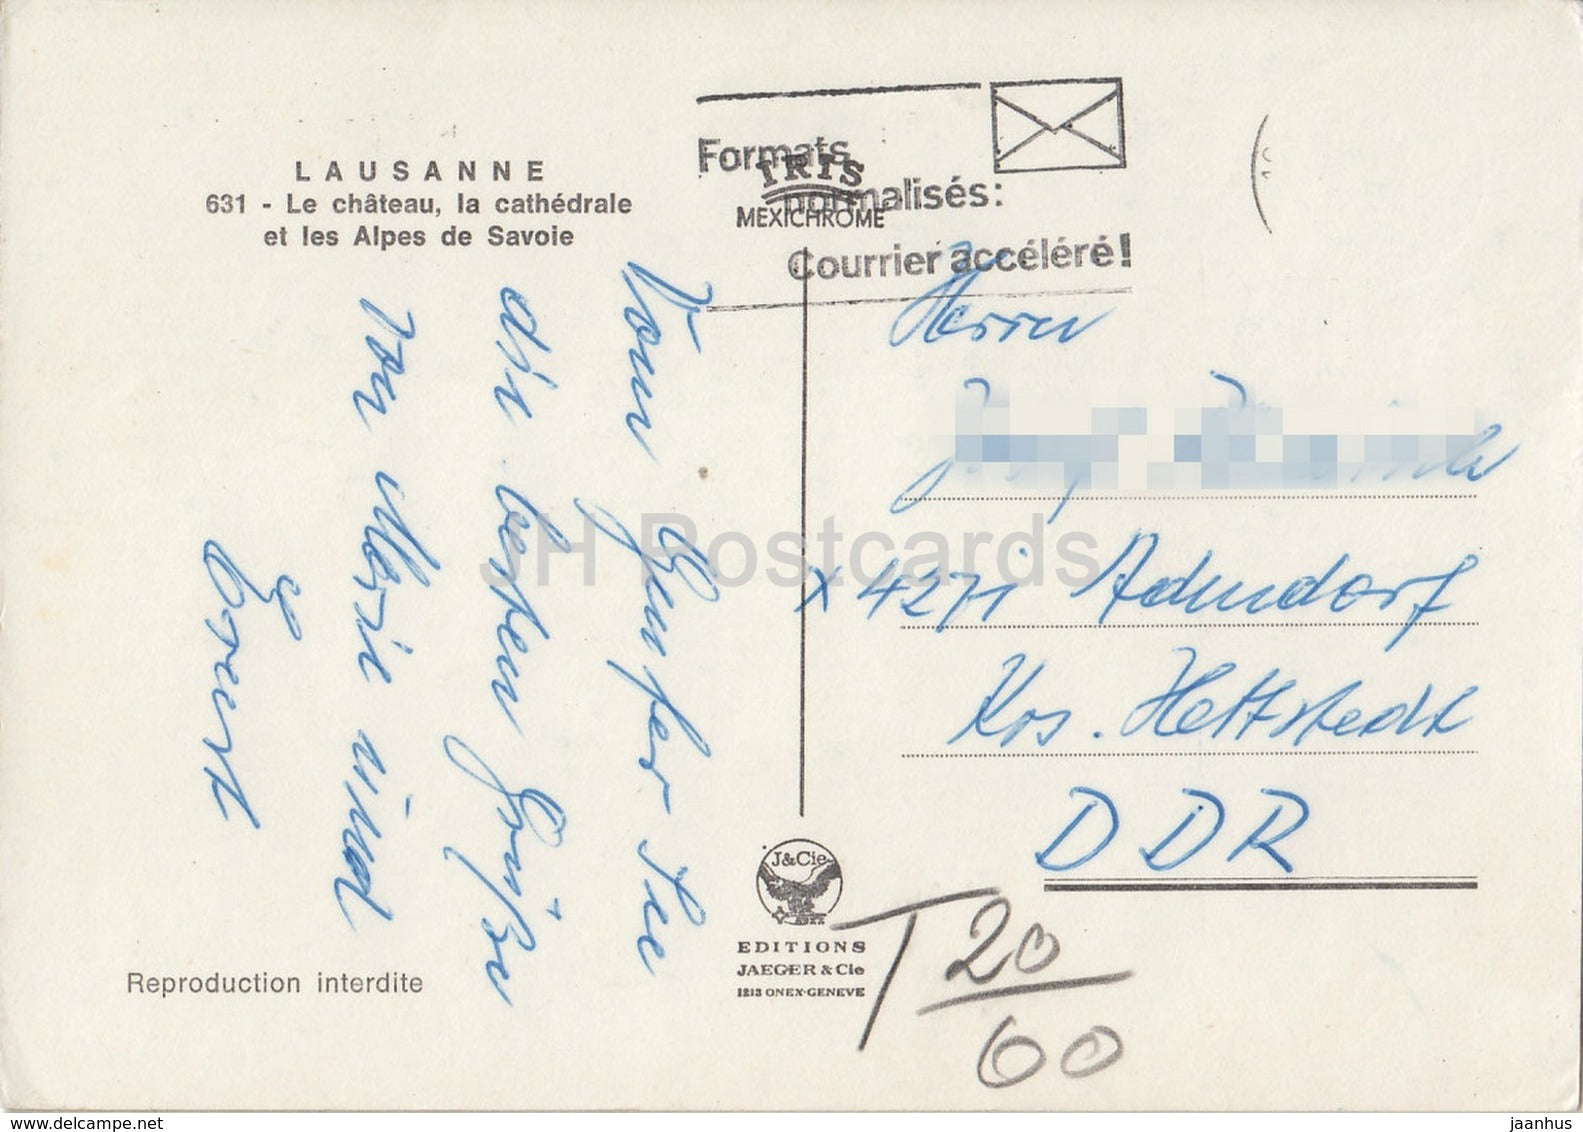 LAUSANNE
631 - Le château, la cathédrale
et les Alpes de Savoie
Formats
normalisés:
Courrier accéléré!
IRIS
MEXICHROME
Vom Genfer See
die besten Grüße
von Marie und
Herrn
X 4271
Krs. Hettstedt
DDR
J&Cie
EDITIONS
JAEGER & Cie
1213 ONEX-GENEVE
T 20
60
Reproduction interdite
JH Postcards
www.delcampe.net
jaanhus